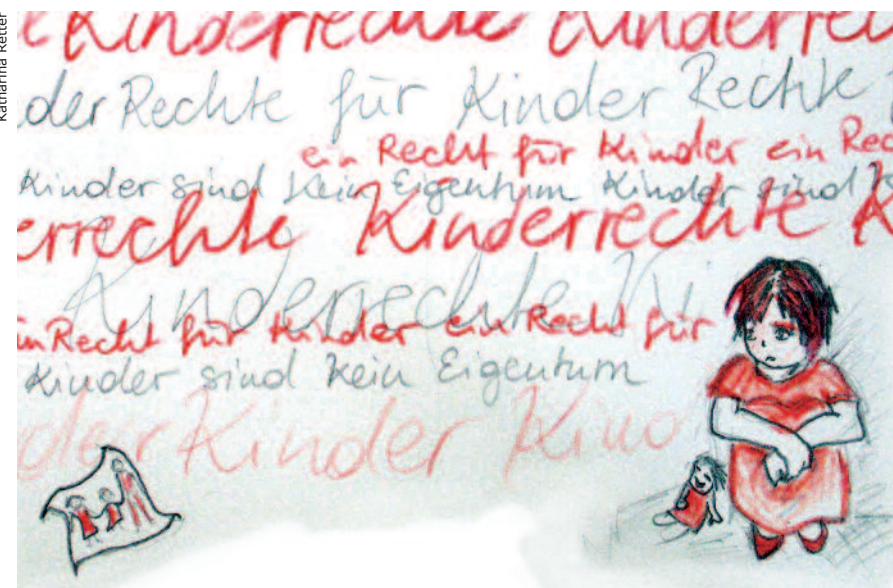 Katharina Retter
Kinderrechte Kinderrech
der Rechte für Kinder Rechte
ein Recht für Kinder ein Rec
Kinder sind kein Eigentum Kinder sind k
errechte Kinderrechte K
Kinderrechte Ki
in Recht für Kinder ein Recht für
Kinder sind kein Eigentum
der Kinder Kind